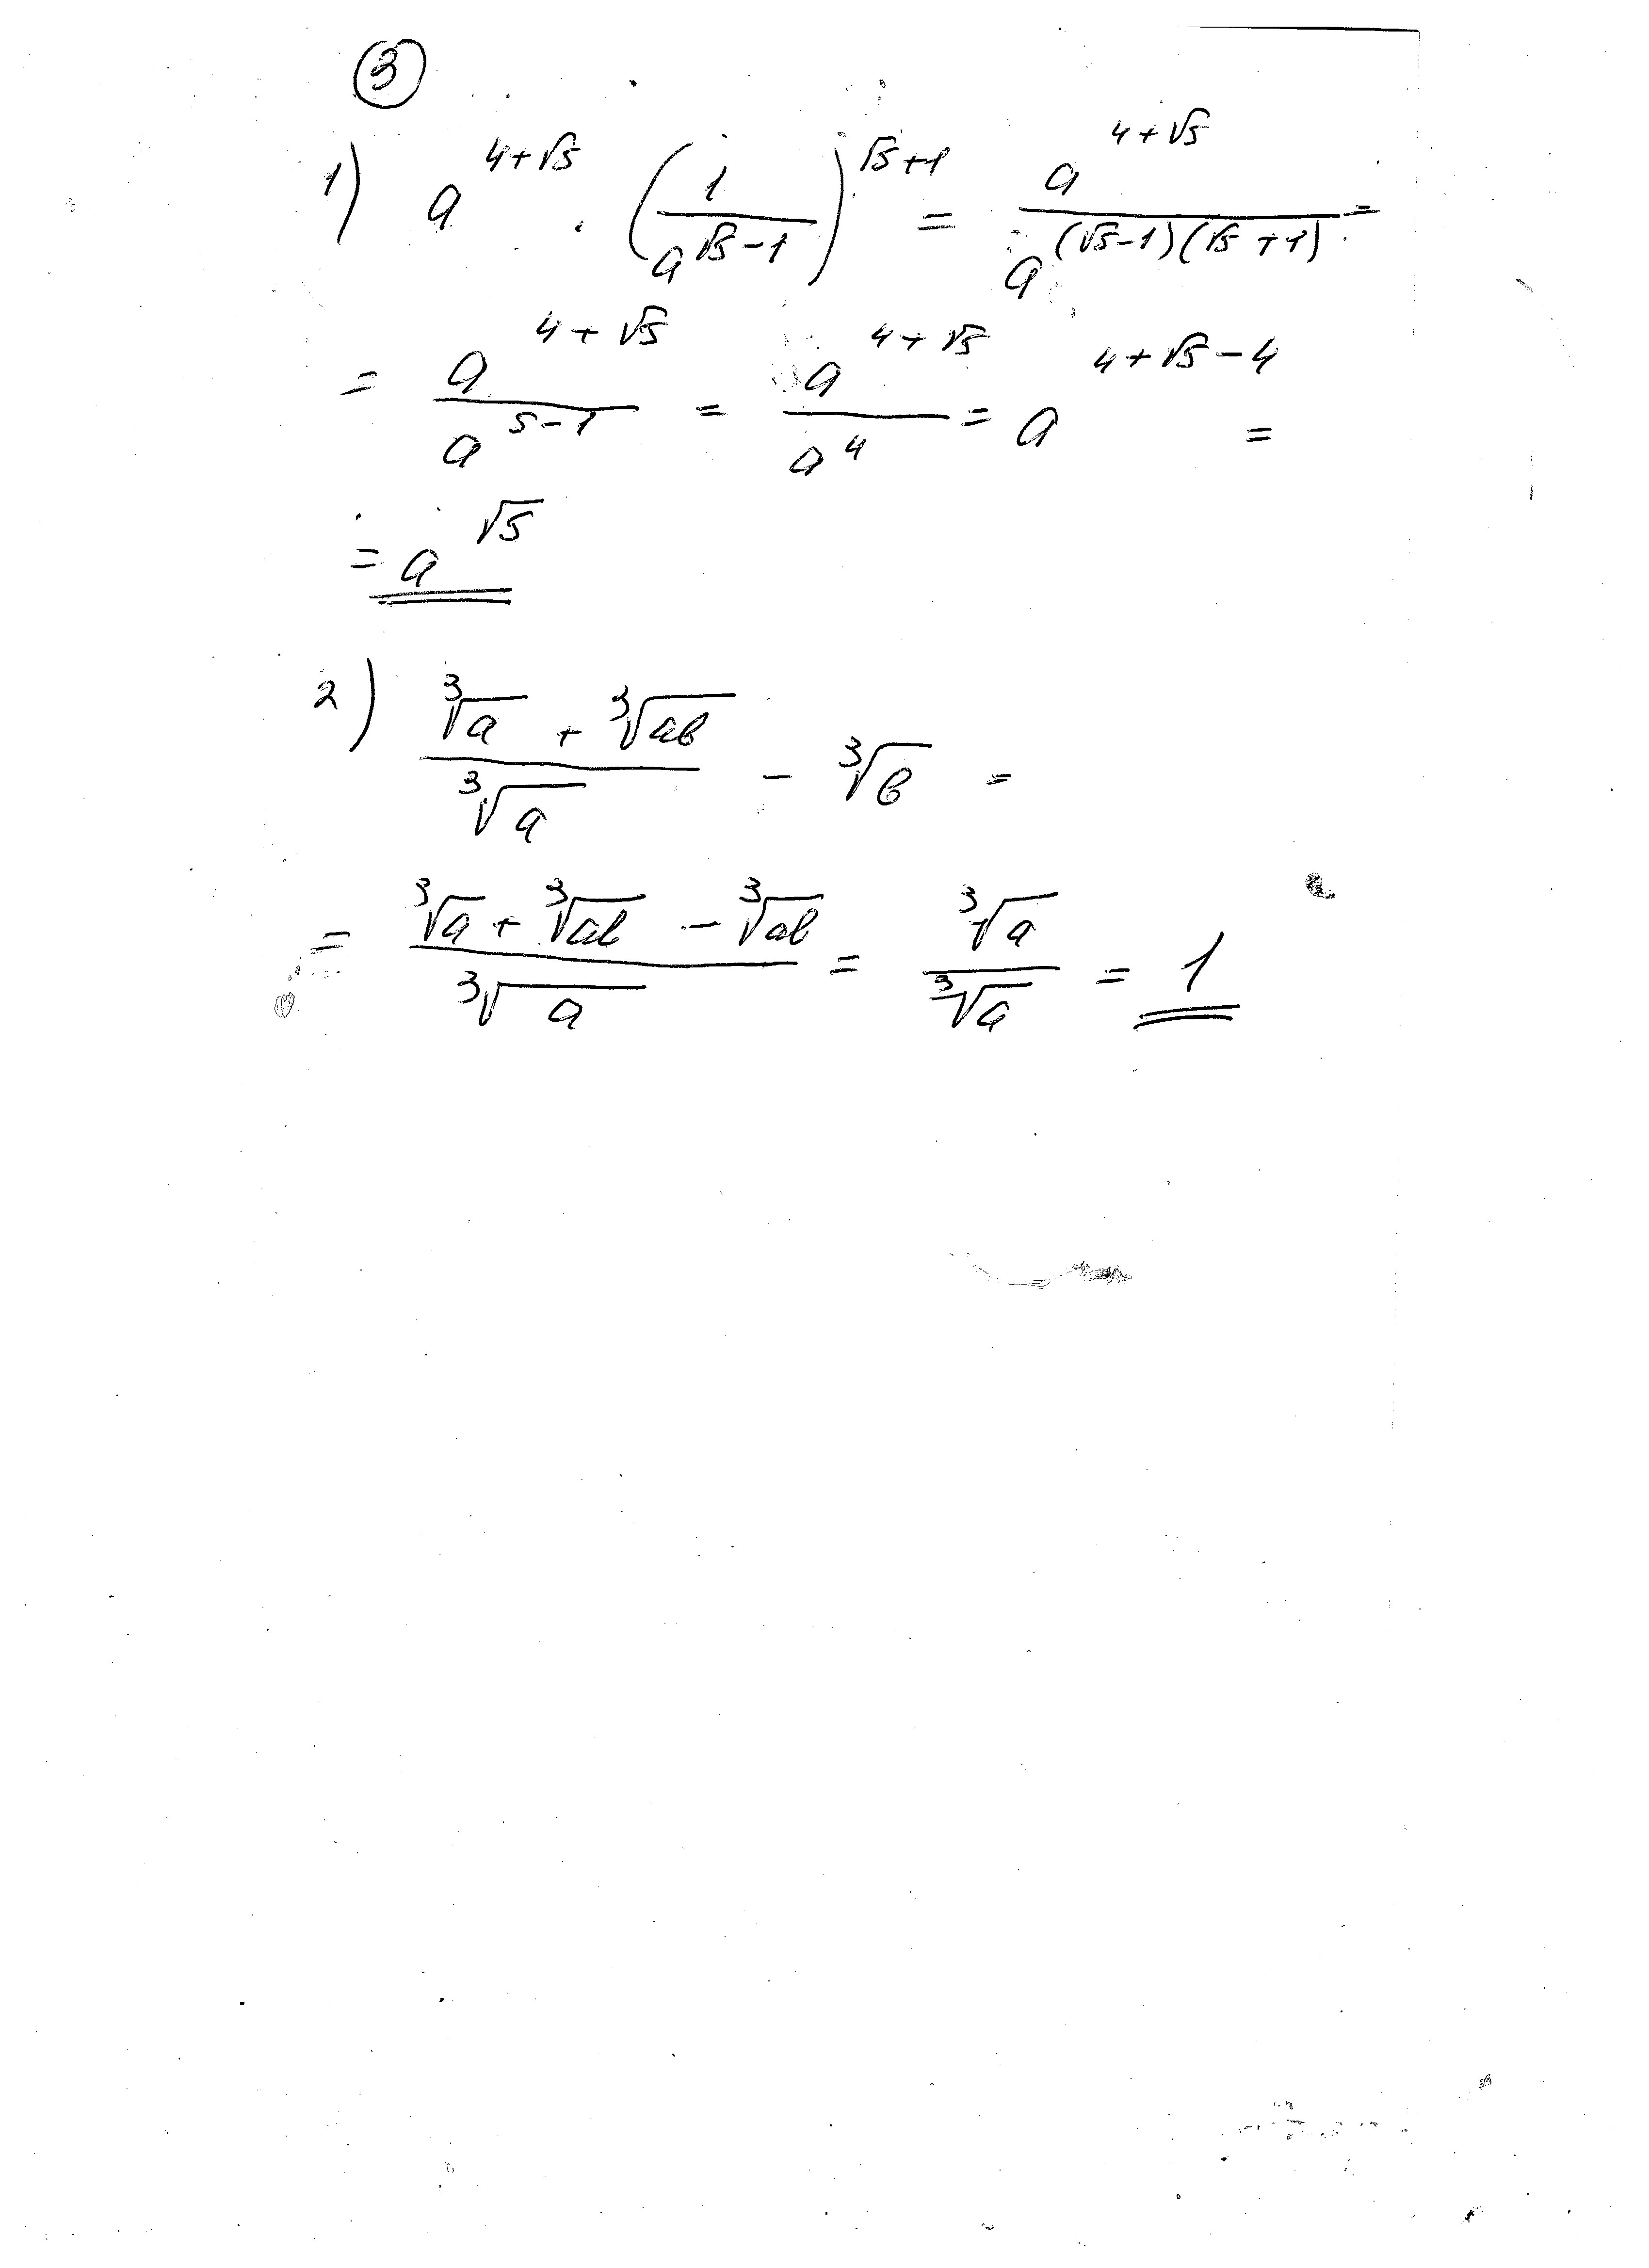 ③
1) a^(4+√5) · (1/a^(√5-1))^(√5+1) = a^(4+√5)/a^((√5-1)(√5+1)) =
= a^(4+√5)/a^(5-1) = a^(4+√5)/a^4 = a^(4+√5-4) =
= a^(√5)
2) (∛a + ∛(ab))/∛a - ∛b =
= (∛a + ∛(ab) - ∛(ab))/∛a = ∛a/∛a = 1